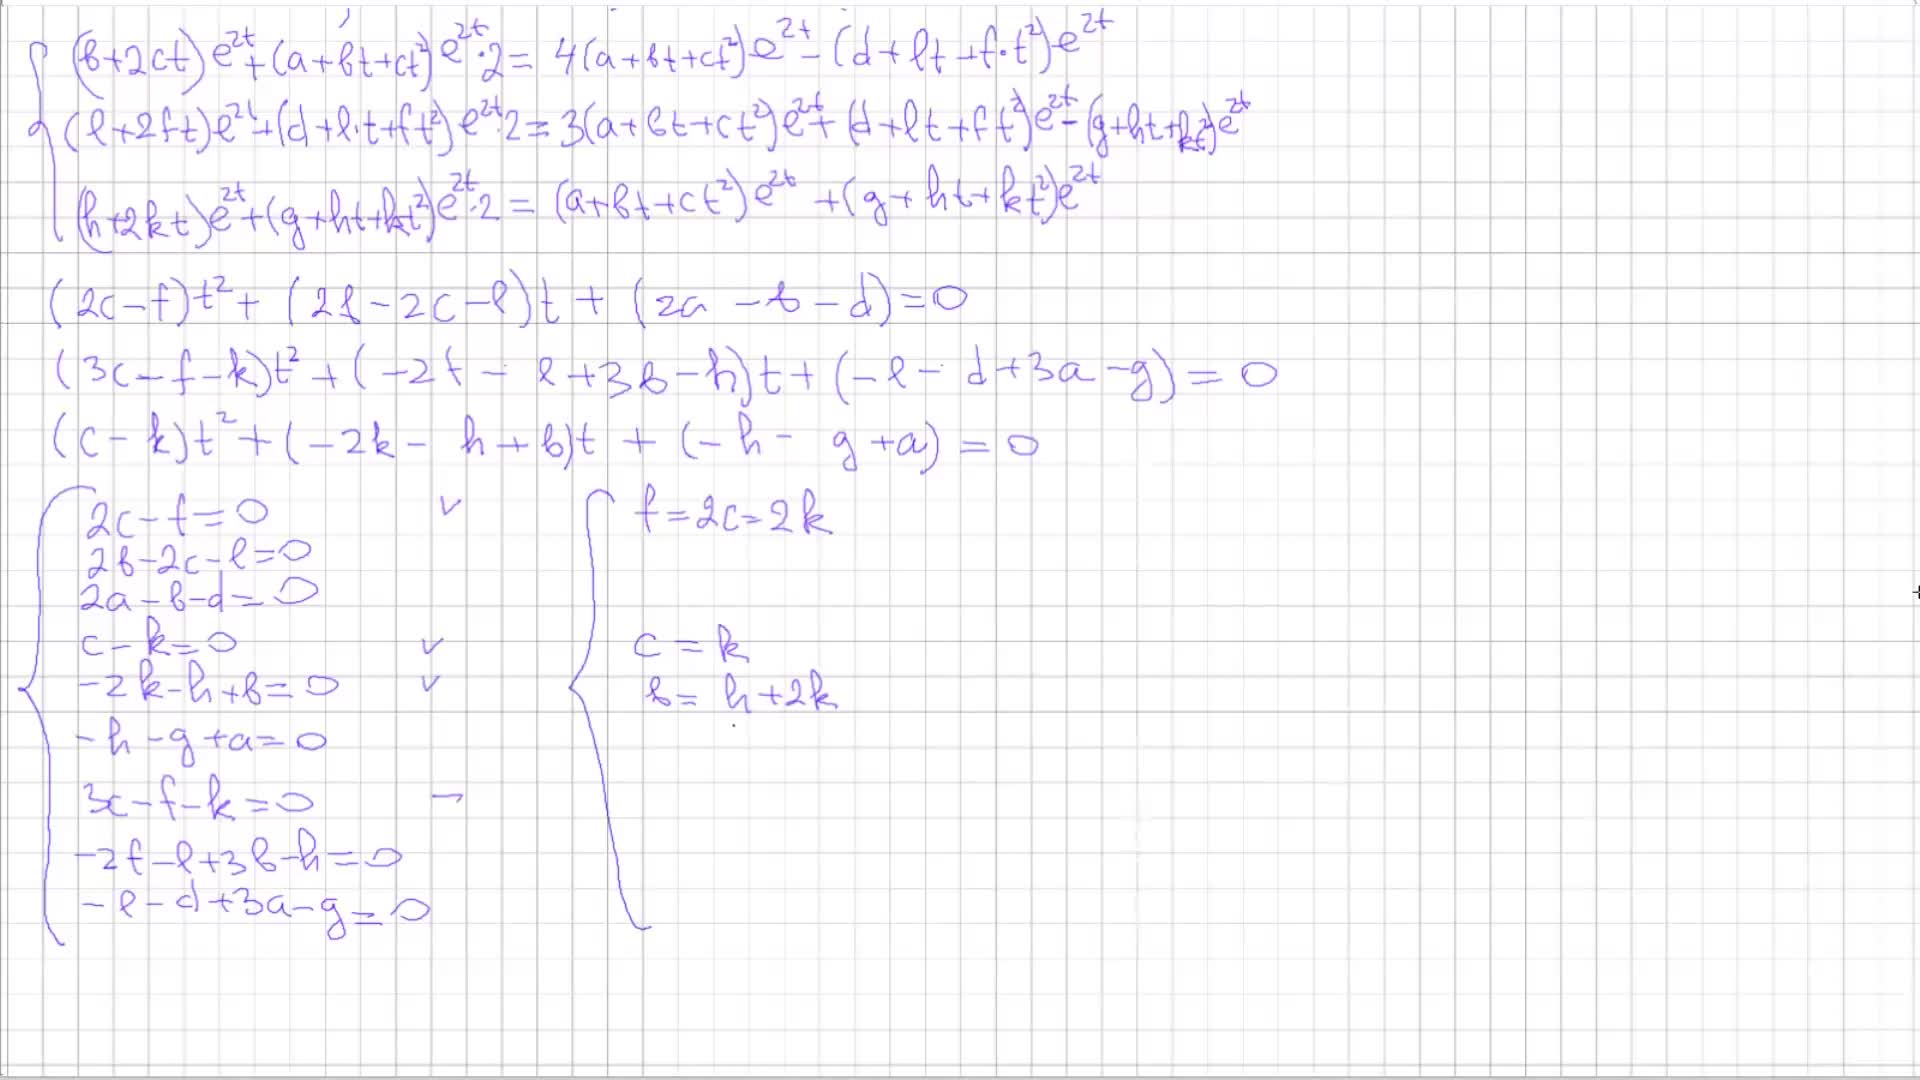 (b+2ct)e^{2t}+(a+bt+ct²)e^{2t}·2=4(a+bt+ct²)e^{2t}-(d+lt+f·t²)e^{2t}
(l+2ft)e^{2t}+(d+l·t+ft²)e^{2t}·2=3(a+bt+ct²)e^{2t}+(d+lt+ft²)e^{2t}-(g+ht+kt²)e^{2t}
(h+2kt)e^{2t}+(g+ht+kt²)e^{2t}·2=(a+bt+ct²)e^{2t}+(g+ht+kt²)e^{2t}
(2c-f)t²+(2b-2c-l)t+(2a-b-d)=0
(3c-f-k)t²+(-2f-l+3b-h)t+(-l-d+3a-g)=0
(c-k)t²+(-2k-h+b)t+(-h-g+a)=0
2c-f=0 v
2b-2c-l=0
2a-b-d=0
c-k=0 v
-2k-h+b=0 v
-h-g+a=0
3c-f-k=0 -
-2f-l+3b-h=0
-l-d+3a-g=0
f=2c=2k
c=k
b=h+2k